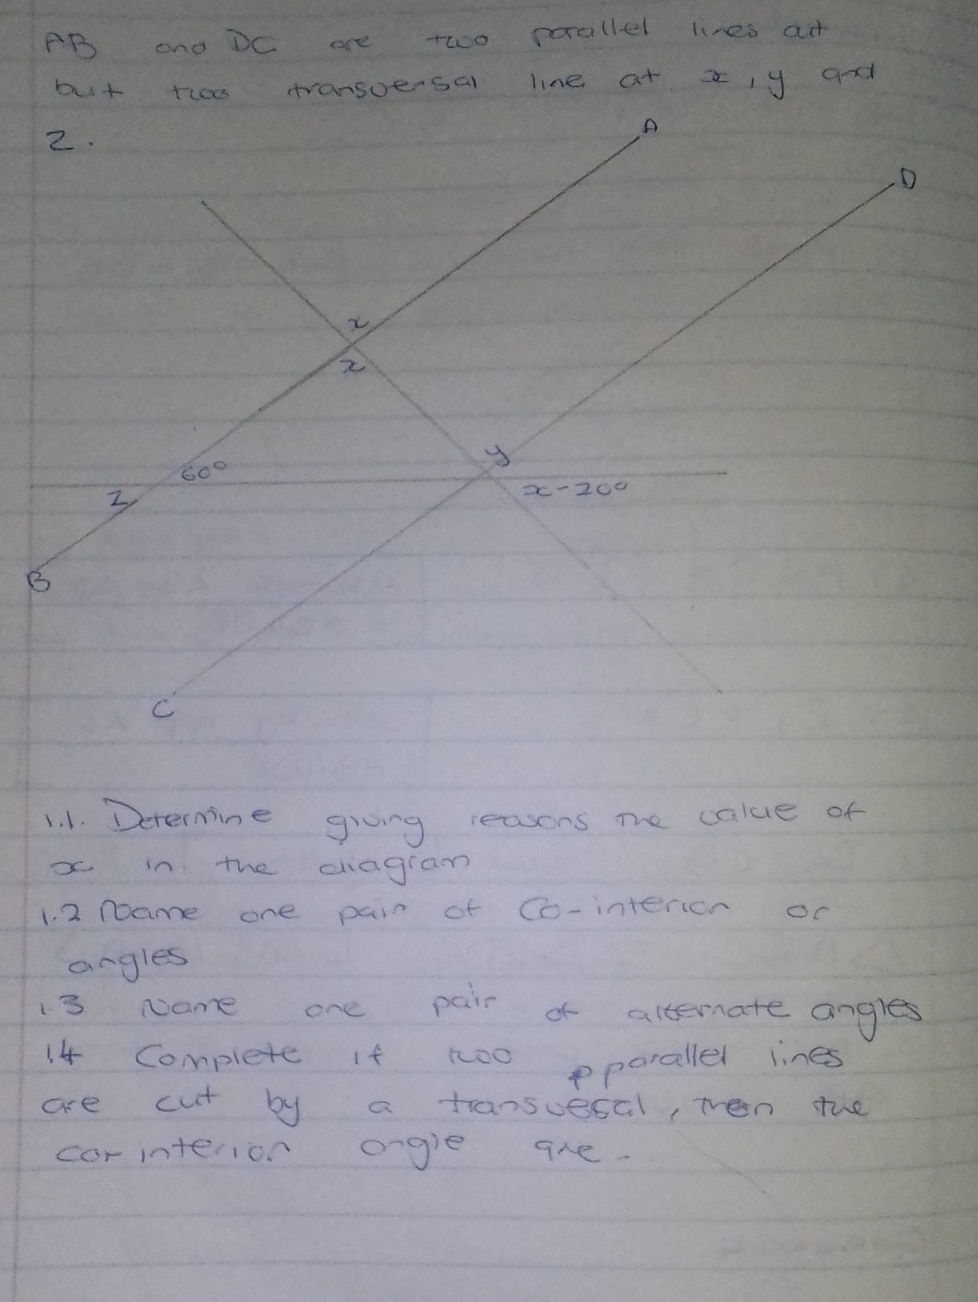 AB and DC are two parallel lines ad
but two transversal line at x, y and
2.
A
D
x
x
y
60°
x-20°
Z
B
C
1.1. Determine giving reasons the value of
x in the diagram
1.2 Name one pair of Co-interior or
angles
1.3 Name one pair of alternate angles
1.4 Complete if two parallel lines
are cut by a transvesal, then the
cor interior angle are.